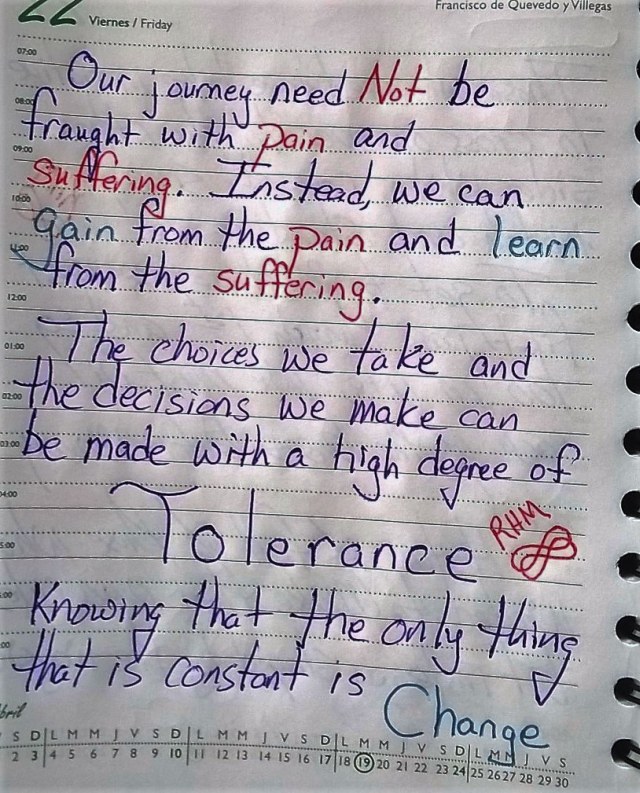 22 Viernes / Friday
Francisco de Quevedo y Villegas
07:00
Our journey need Not be
08:00
fraught with pain and
09:00
suffering. Instead, we can
10:00
gain from the pain and learn
from the suffering.
12:00
The choices we take and
01:00
the decisions we make can
02:00
be made with a high degree of
03:00
04:00
Tolerance RHM
5:00
Knowing that the only thing
:00
that is constant is
:00
Change
bril
S D L M M J V S D L M M J V S D L M M J V S D L M M J V S
2 3 4 5 6 7 8 9 10 11 12 13 14 15 16 17 18 19 20 21 22 23 24 25 26 27 28 29 30